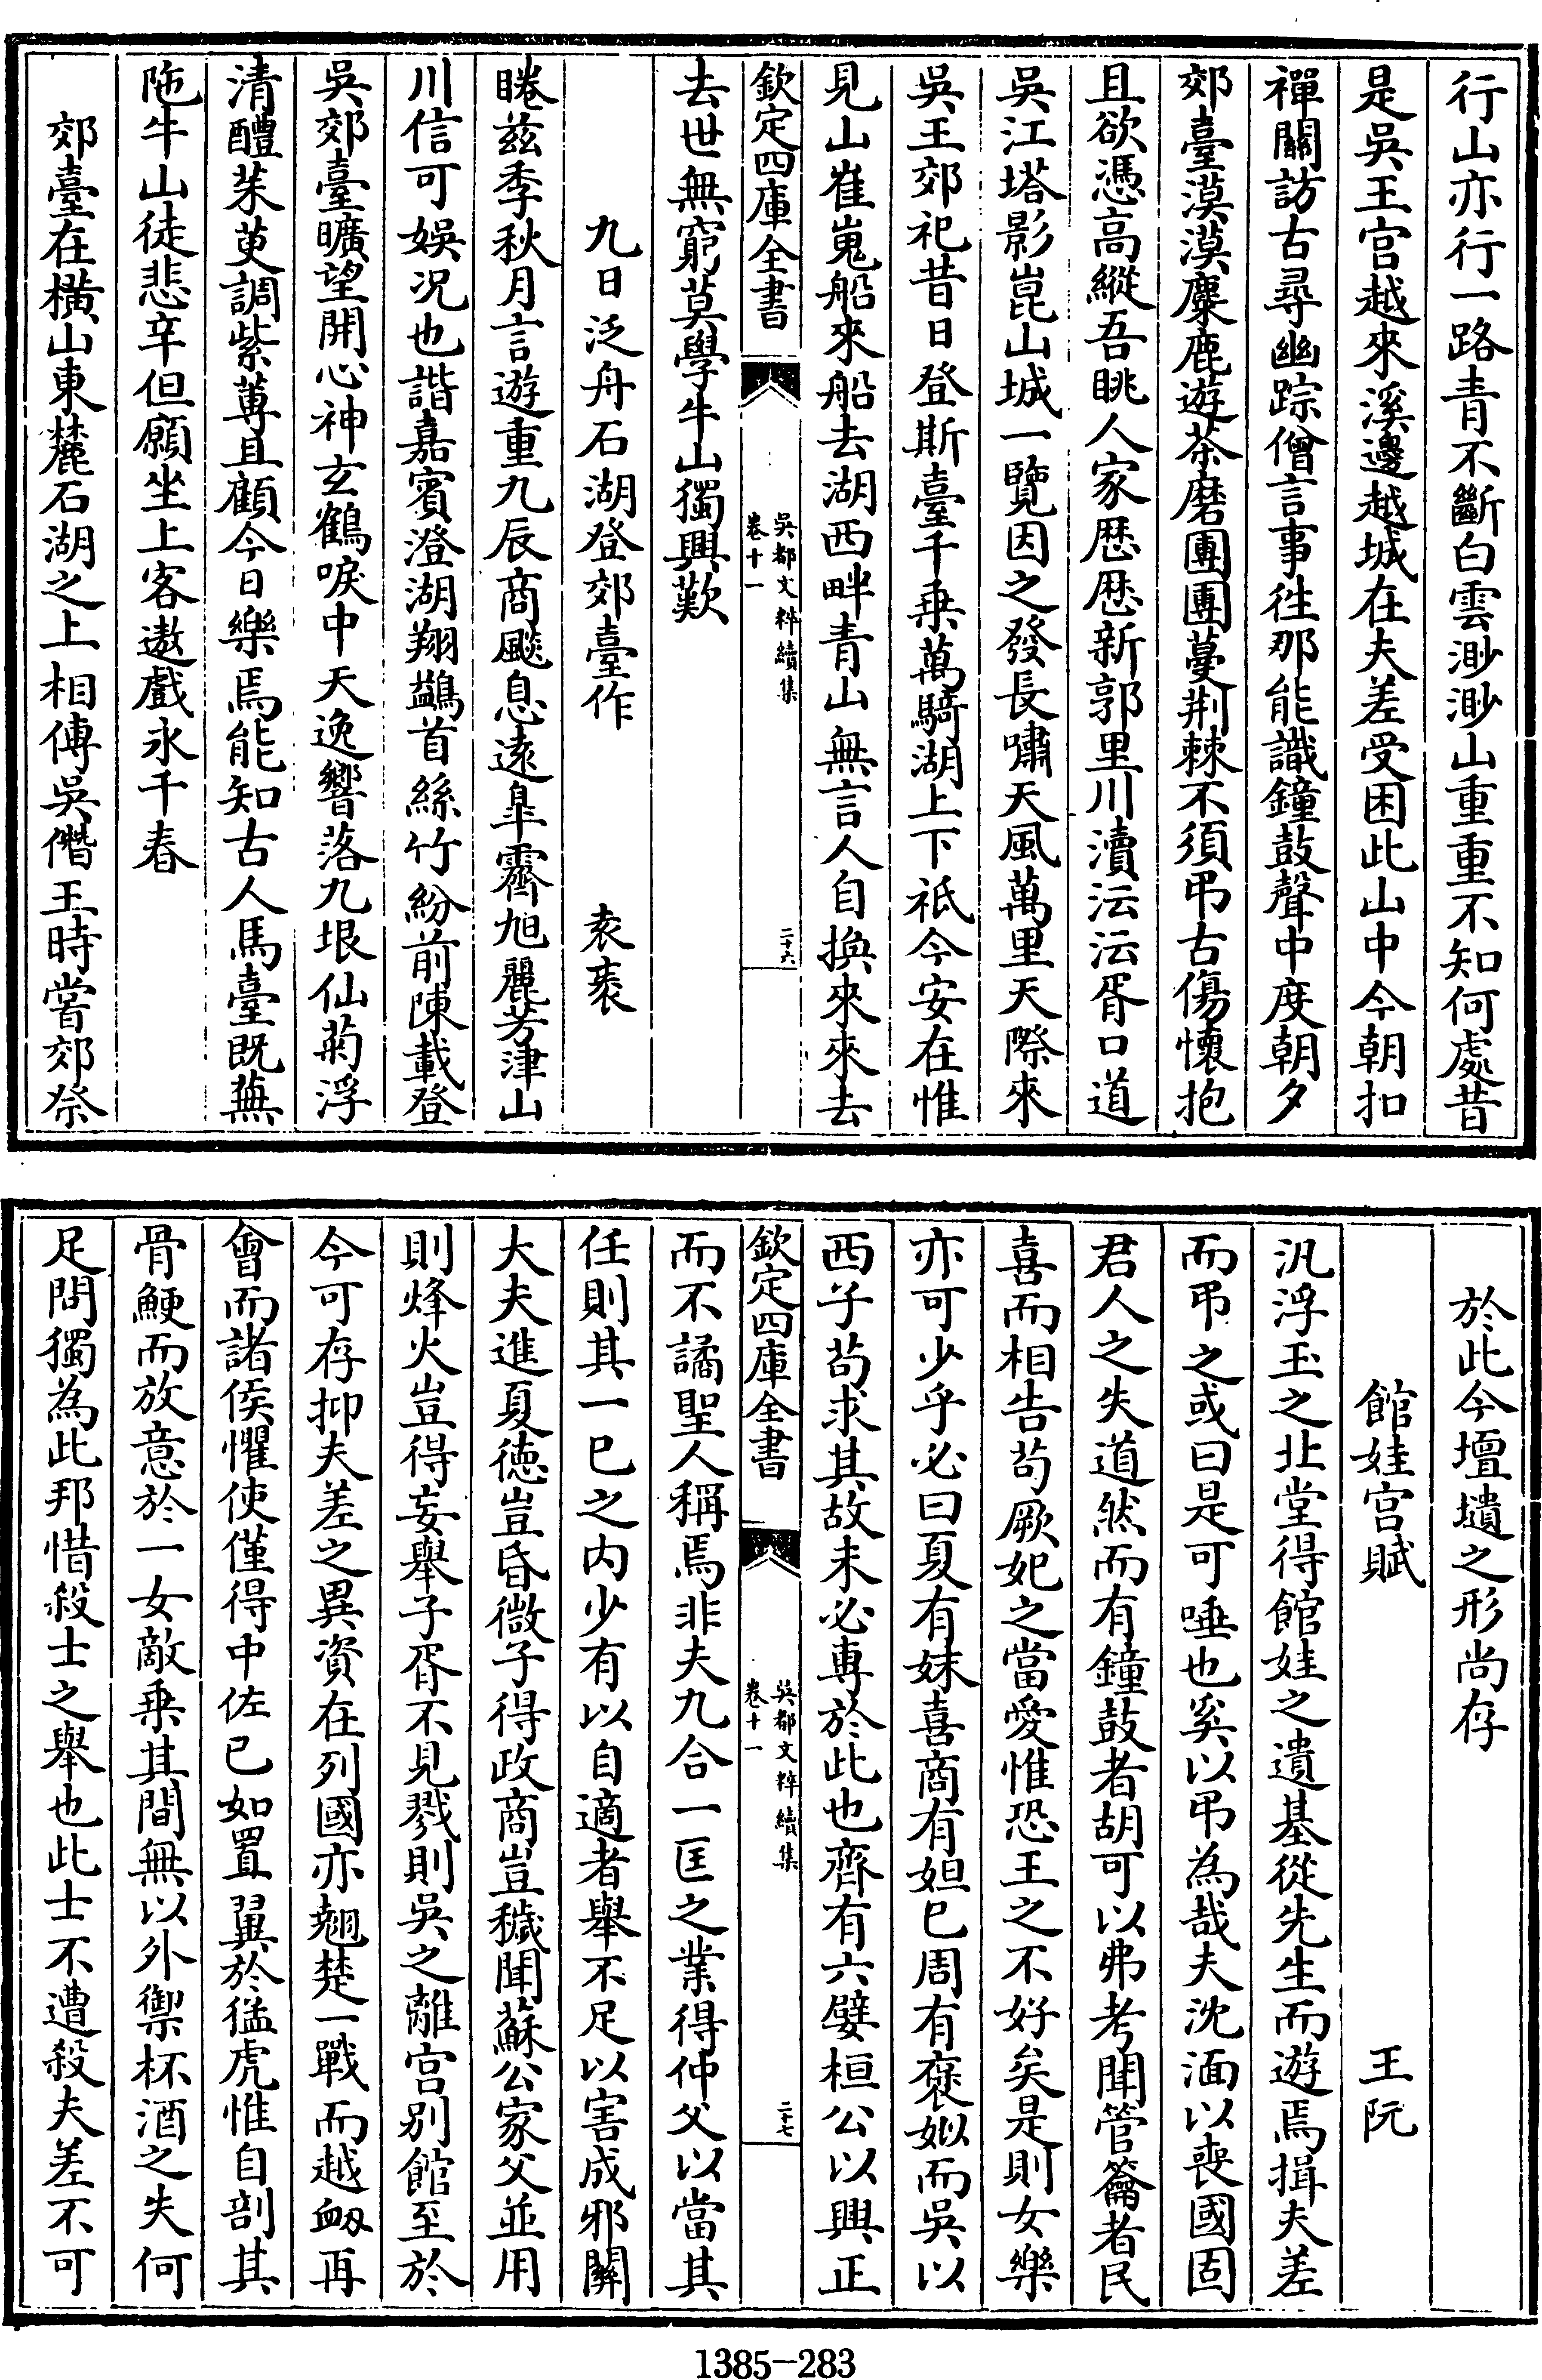 行山亦行一路青不斷白雲渺渺山重重不知何處昔
是吳王宮越來溪邊越城在夫差受困此山中今朝扣
禪關訪古尋幽踪僧言事徃那能識鐘鼓聲中度朝夕
郊臺漠漠麋鹿遊茶磨團團蔓荆棘不須弔古傷懷抱
且欲憑高縱吾眺人家歴歴新郭里川瀆沄沄胥口道
吳江塔影崑山城一覽因之發長嘯天風萬里天際來
吳王郊祀昔日登斯臺千乗萬騎湖上下祇今安在惟
見山崔嵬船來船去湖西畔青山無言人自換來來去
欽定四庫全書
吳都文粹續集
卷十一
二十六
去世無窮莫學牛山獨興歎
九日泛舟石湖登郊臺作
袁袠
睠兹季秋月言遊重九辰商飈息逺臯霽旭麗芳津山
川信可娱况也諧嘉賓澄湖翔鷁首絲竹紛前陳載登
吳郊臺曠望開心神玄鶴唳中天逸響落九垠仙菊浮
清醴茱萸調紫蓴且顧今日樂焉能知古人馬臺既蕪
阤牛山徒悲辛但願坐上客遨戲永千春
郊臺在橫山東麓石湖之上相傳吳僭王時嘗郊祭
於此今壇壝之形尚存
館娃宮賦
王阮
汎浮玉之北堂得館娃之遺基從先生而遊焉揖夫差
而弔之或曰是可唾也奚以弔為哉夫沈湎以喪國固
君人之失道然而有鐘鼓者胡可以弗考聞管籥者民
喜而相告苟厥妃之當愛惟恐王之不好矣是則女樂
亦可少乎必曰夏有妺喜商有妲已周有褒姒而吳以
西子苟求其故未必專於此也齊有六嬖桓公以興正
欽定四庫全書
吳都文粹續集
卷十一
二十七
而不譎聖人稱焉非夫九合一匡之業得仲父以當其
任則其一已之内少有以自適者舉不足以害成邪關
大夫進夏徳豈昏微子得政商豈穢聞蘇公家父並用
則烽火豈得妄舉子胥不見戮則吳之離宮别館至於
今可存抑夫差之異資在列國亦翹楚一戰而越衂再
會而諸侯懼使僅得中佐已如置翼於猛虎惟自剖其
骨鯁而放意於一女敵乗其間無以外禦杯酒之失何
足問獨為此邦惜殺士之舉也此士不遭殺夫差不可
1385-283